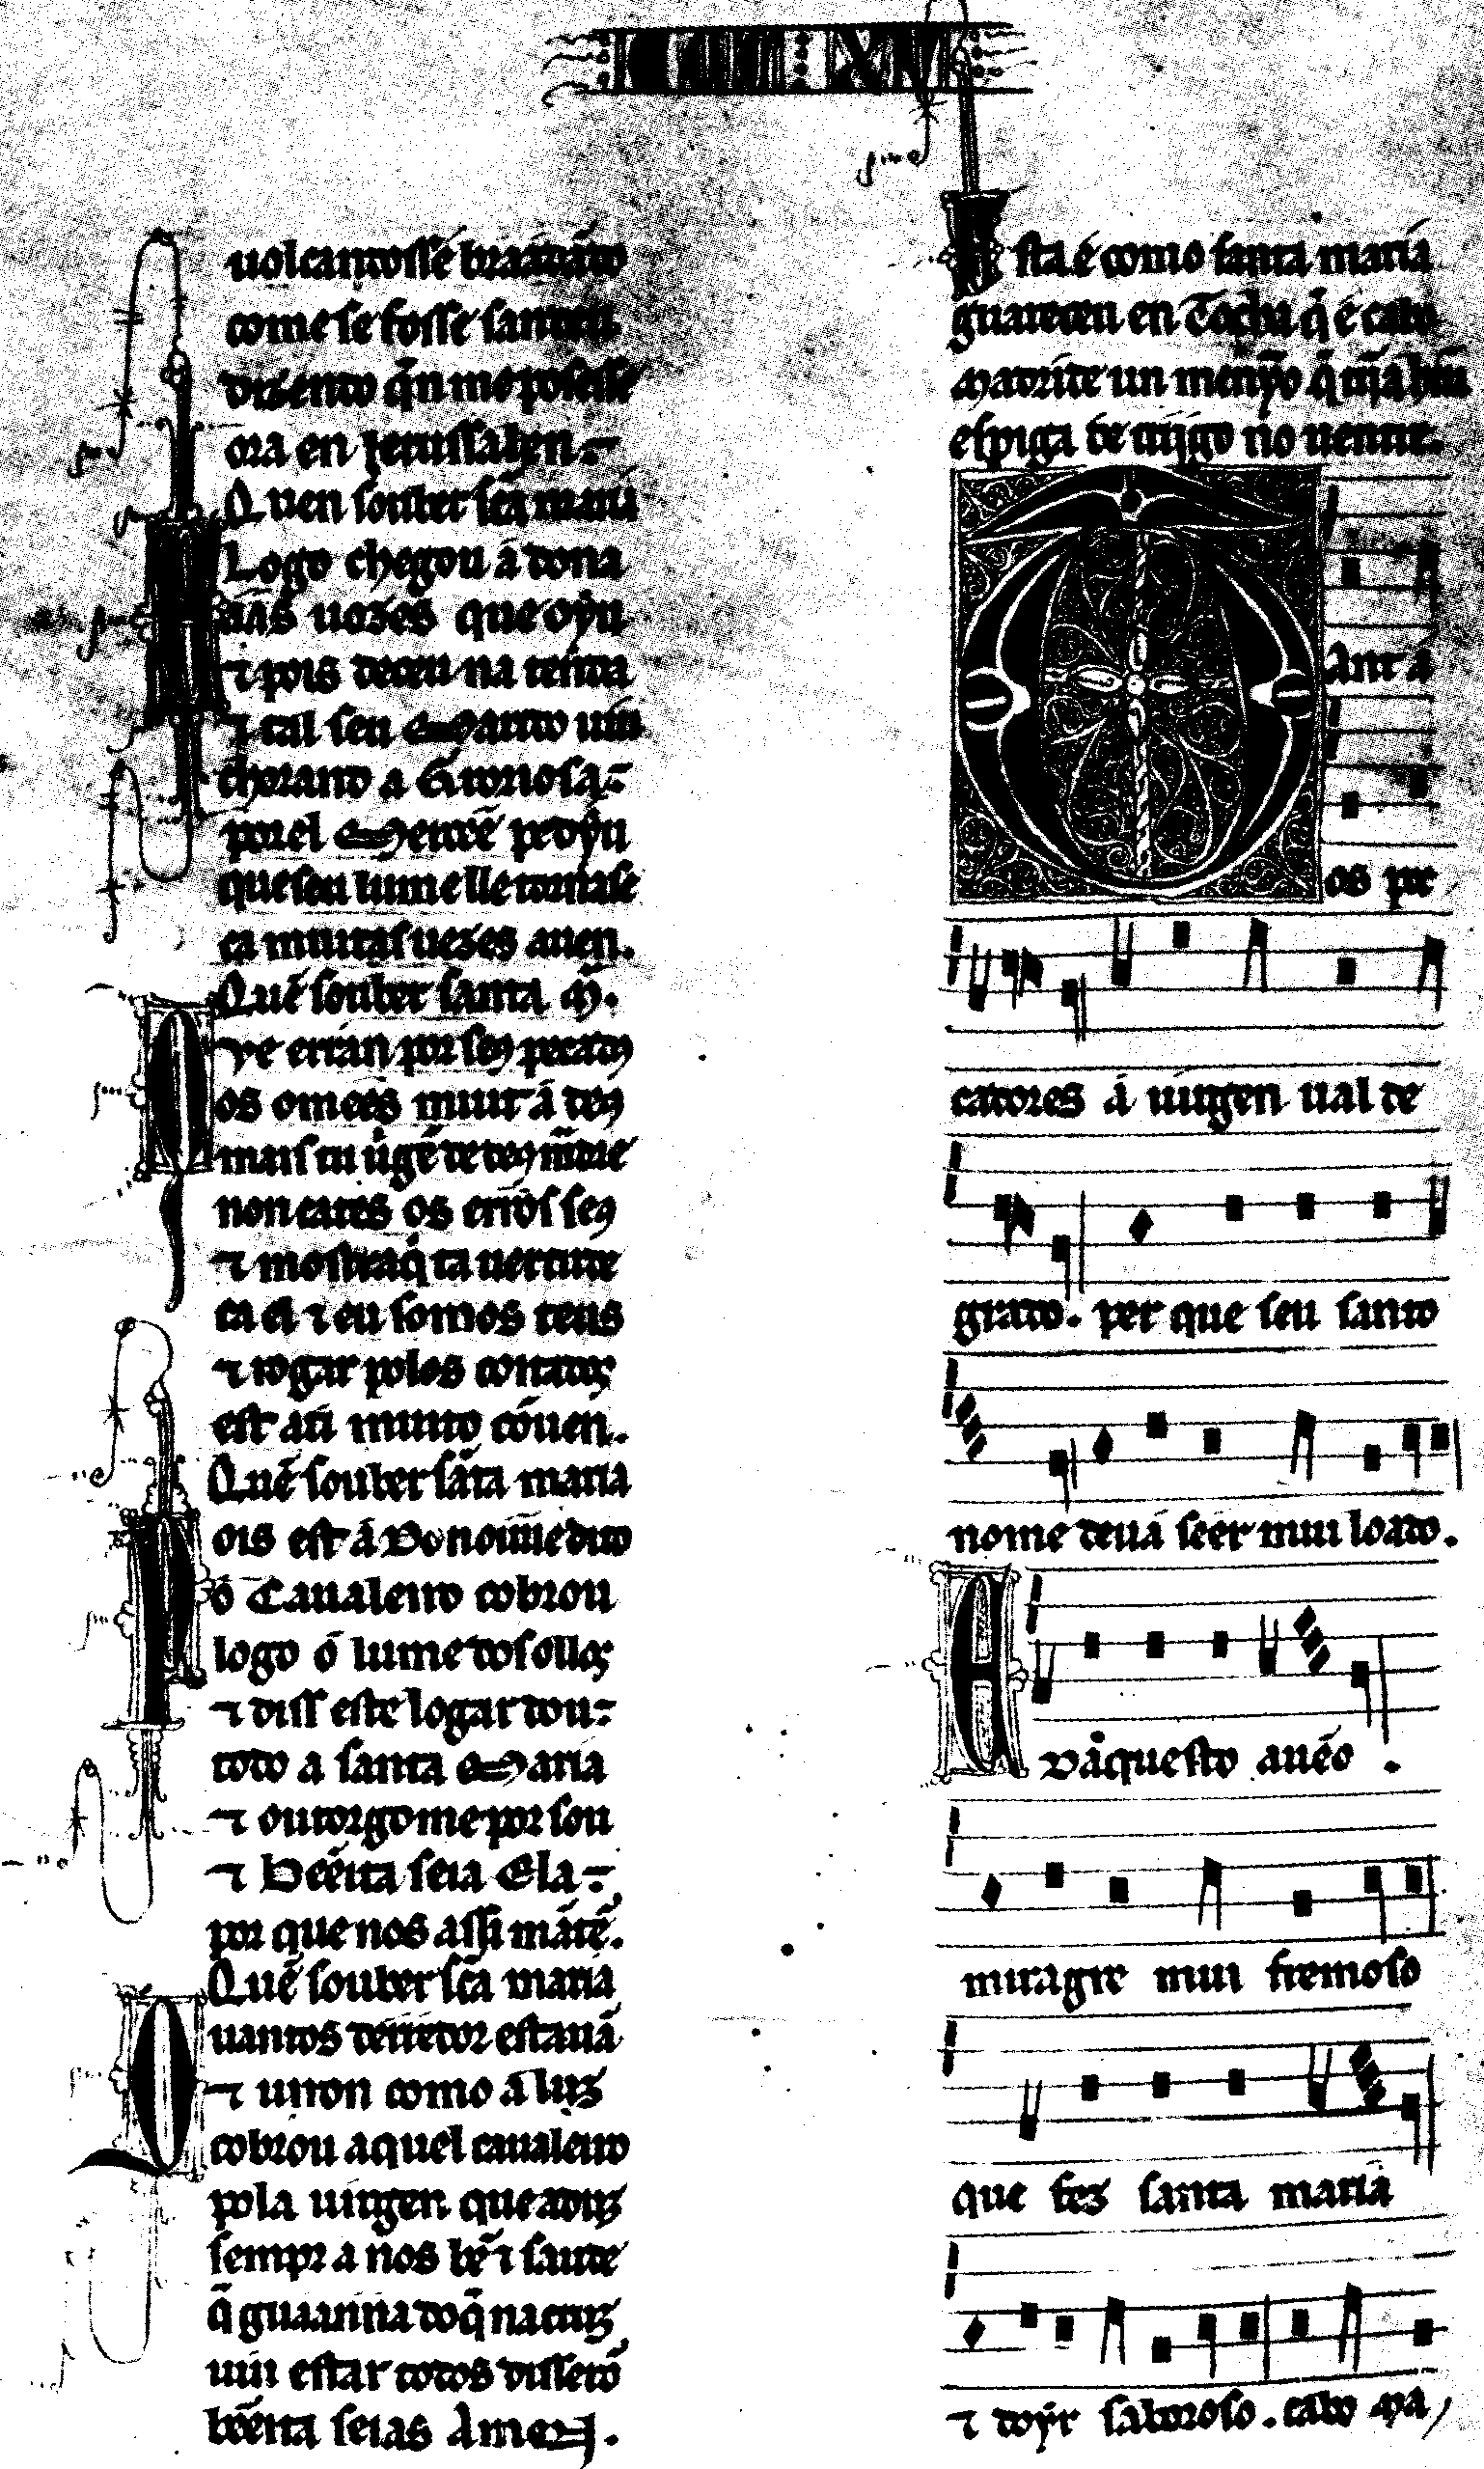 uol cantosse braadādo
come se fosse sandeu
dizendo q̄n me posesse
ora en Jerussalen.
Quen souber sc̄a maria
Logo chegou á dona
aas uozes que oyu
⁊ pois deceu na tenda
⁊ tal seu Manto uiu
chorand a Groriosa
por el Merceē pedyu
que seu lume lle tornasse
ca muitas uezes auen.
Quē souber santa M.
Que erran por seus pecados
os omees muit á deus
mais tu uigē de deus madre
non cates os erros seus
⁊ mostra q̇ ta uertude
ca el ⁊ eu somos teus
⁊ rogar polos coitados
est a ti muito cōuen.
Quē souber sāta maria
ois est á Dona oūue dito
o Caualeiro cobrou
logo ó lume dos ollos
⁊ diss este logar dou
todo a santa Maria
⁊ outorgome por sou
⁊ Bēeita seia Ela
por que nos assi mātē.
Quē souber sc̄a maria
uantos derredor estauā
⁊ uiron como á luz
cobrou aquel caualeiro
pola uirgen que aduz
sempr a nos bē ⁊ saude
q̄ guaanna do q̄ na cruz
uiu estar todos disserō
bēeita seias Amen.
sta é como santa maria
guareceu en Tocha q̇ é cabo
Madride un menỹo q̇ tīia hūa
espiga de trijgo no uentre.
Ant a
os pe
catores á uirgen ual de
grado. per que seu santo
nome deuā seer mui loado.
D aquesto auēo .
miragre mui fremoso
que fez santa maria
⁊ doyr saboroso. cabo ma